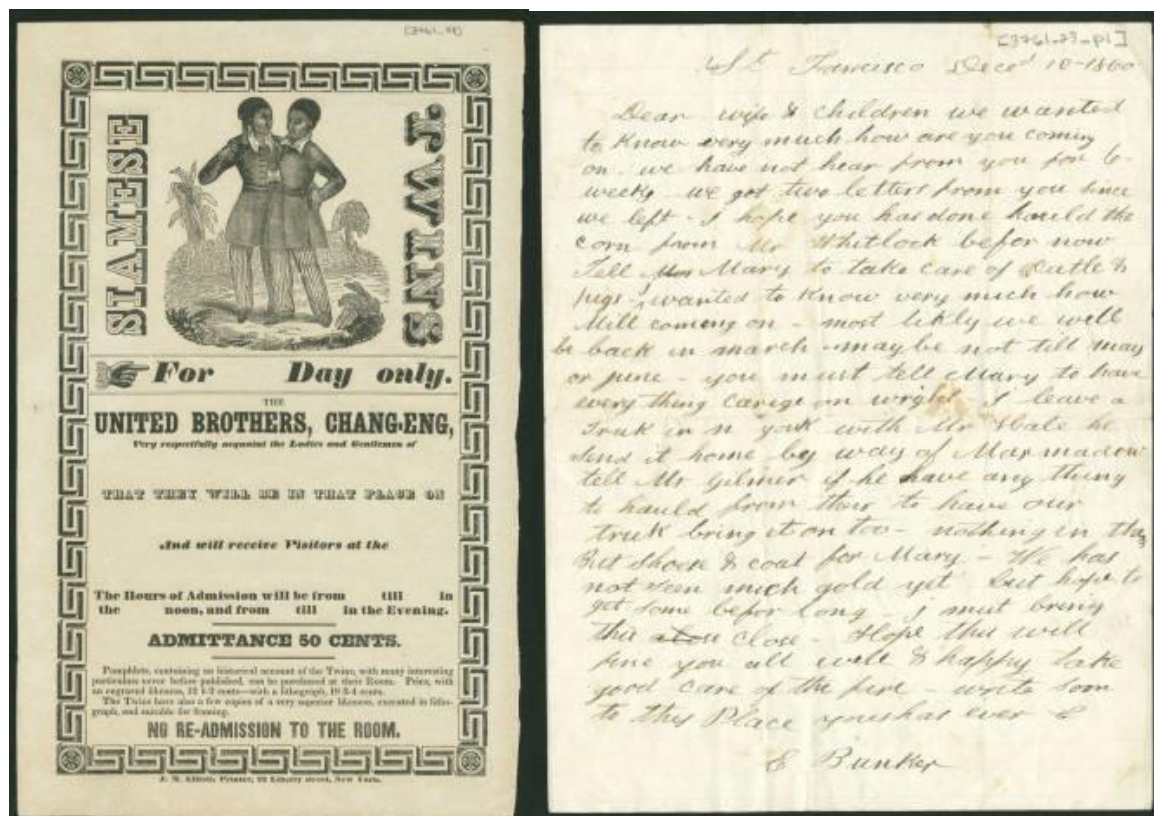 [3761_88]
SIAMESE
TWINS
For Day only.
THE
UNITED BROTHERS, CHANG-ENG,
Very respectfully acquaint the Ladies and Gentlemen of
THAT THEY WILL BE IN THAT PLACE ON
And will receive Visitors at the
The Hours of Admission will be from till in
the noon, and from till in the Evening.
ADMITTANCE 50 CENTS.
Pamphlets, containing an historical account of the Twins, with many interesting
particulars never before published, can be purchased at their Room. Price, with
an engraved likeness, 12 1-2 cents—with a lithograph, 18 3-4 cents.
The Twins have also a few copies of a very superior likeness, executed in litho-
graph, and suitable for framing.
NO RE-ADMISSION TO THE ROOM.
J. M. Elliott, Printer, Liberty street, New York.
[3761_23_p1]
St Fancisco Dece 10-1860
Dear wife & children we wanted
to know very much how are you coming
on - we have not hear from you for 6-
weeks we got two letters from you since
we left - I hope you has done hauld the
corn from Mr Whitlock befor now
Tell Mary to take care of Catle &
pigs - I wanted to know very much how
Mill coming on - most likly we will
be back in march - maybe not till may
or june - you must tell Mary to have
every thing carige on wright I leave a
Truk in N york with Mr Hale he
send it home by way of Mar madow
tell Mr Gilmer if he have any thing
to hauld from ther to have our
truk bring it on too - nothing in the
But shoes & coat for Mary - We has
not seen much gold yet but hope to
get some befor long I must bring
this close - Hope this will
fine you all well & happy take
good care of the fire - write soon
to this Place yours has ever E
E Bunker